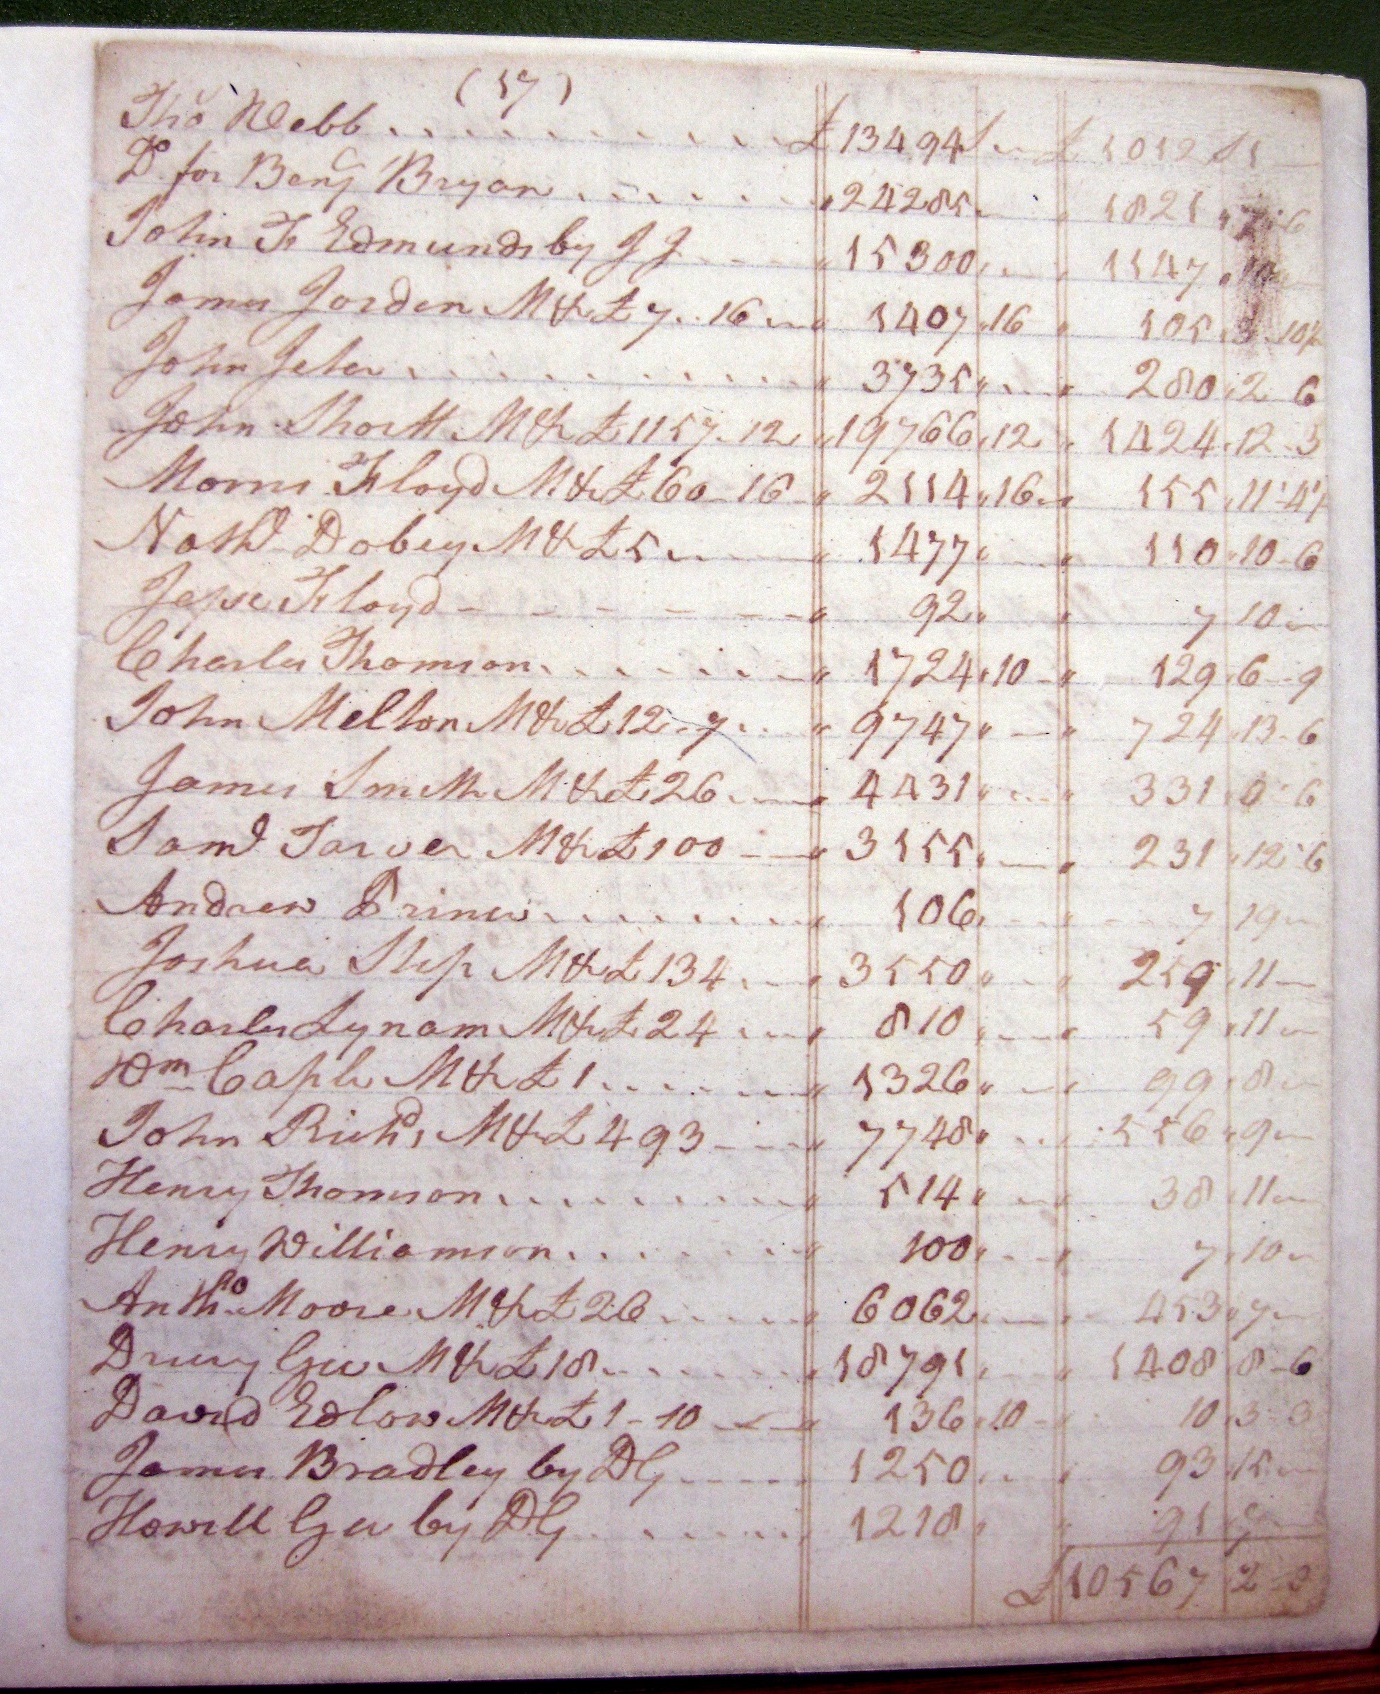 (17)
Tho Webb . . . . . . . . £ 13494 £ 1012 £1
Do for Benj Bryan . . . . . . " 24285 " 1821 " 7 6
John F Edmunds by J J " 15300 " 1147 " 10
James Jordan M & £7 .. 16 " 1407 " 16 " 105 " 3 10½
John Jeter . . . . . . . . . " 3735 " 280 " 2 6
John Shortt M & £1157 .. 12 " 19766 " 12 " 1424 " 12 - 3
Morris Floyd M & £60 - 16 " 2114 " 16 " 155 " 11 - 4½
Nathl Dobey M & £5 " 1477 " 110 " 10 - 6
Jesse Floyd - - - - - - " 92 " 7 10
Charles Thomson . . . . . " 1724 " 10 - " 129 " 6 - 9
John Melton M & £12 .. 7 " 9747 " 724 " 13 - 6
James Smith M & £26 " 4431 " 331 " 0 - 6
Saml Tarver M & £100 " 3155 " 231 " 12 - 6
Andrew . . . . . . . " 106 " 7 19
Joshua M & £134 " 3550 " 259 " 11
Charles Lynam M & £24 " 810 " 59 " 11
Wm Caple M & £1 . . . . . " 1326 " 99 " 8
John Richds M & £493 " 7748 " 556 " 9
Henry Thomson . . . . . . " 514 " 38 " 11
Henry Williamson . . . . . " 100 " 7 10
Antho Moore M & £26 . . . . 6062 453 " 7
Drury Gee M & £18 . . . . . 18791 " 1408 8 - 6
David Edlow M & £1 - 10 " 136 " 10 - " 10 3 - 3
James Bradley by DG 1250 " 93 15
Howell Gee by DG . . . . . 1218 " 91 7
£ 10567 2 - 3